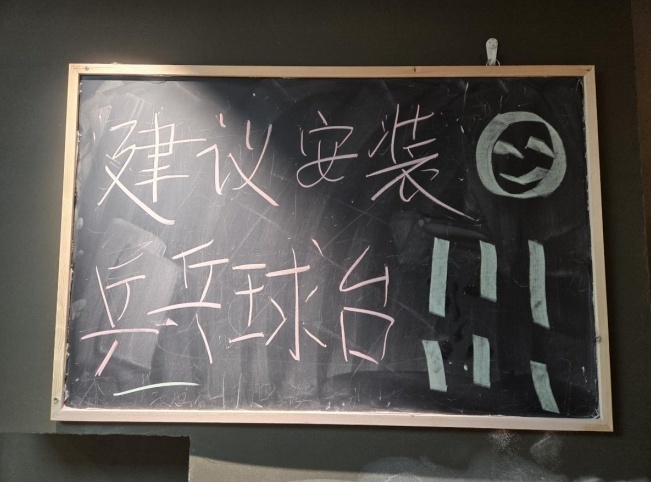 建议安装
乒乓球台!!!